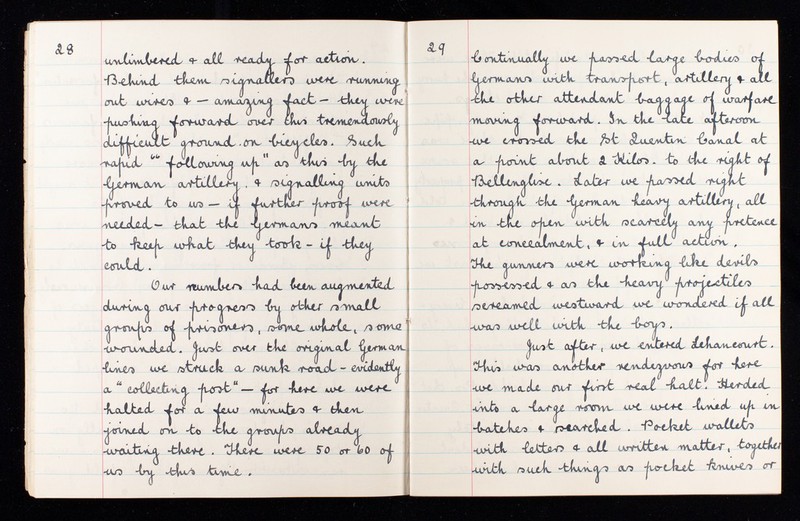 28
unlimbered & all ready for action.
Behind them signallers were running
out wires & — amazing fact — they were
pushing forward over this tremendously
difficult ground on bicycles. Such
rapid "following up" as this by the
German artillery. & signalling units
proved to us — if further proof were
needed — that the Germans meant
to keep what they took — if they
could.
Our numbers had been augmented
during our progress by other small
groups of prisoners, some whole, some
wounded. Just over the original German
lines we struck a sunk road — evidently
a "collecting post" — for here we were
halted for a few minutes & then
joined on to the groups already
waiting there. There were 50 or 60 of
us by this time.
29
Continually we passed large bodies of
Germans with transport, artillery & all
the other attendant baggage of warfare
moving forward. In the late afteroon
we crossed the St Quentin Canal at
a point about 2 Kilos. to the right of
Bellenglise. Later we passed right
through the German heavy artillery, all
in the open with scarcely any pretence
at concealment, & in full action.
The gunners were working like devils
possessed & as the heavy projectiles
screamed westward we wondered if all
was well with the boys.
Just after, we entered Lehancourt.
This was another rendezvous for here
we made our first real halt. Herded
into a large room we were lined up in
batches & searched. Pocket wallets
with letters & all written matter, together
with such things as pocket knives or